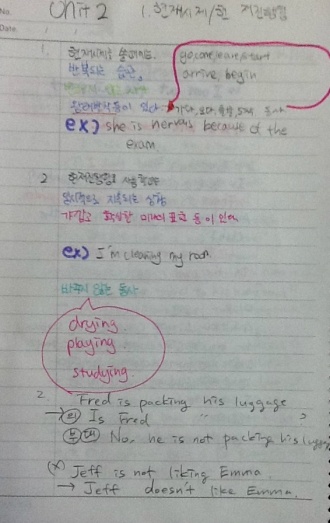 No.
Date.
Unit 2
1. 현재시제/현재진행형
1. 현재시제를 쓸때는
반복되는 습관,
go, come, leave, start
arrive, begin
ex) she is nervous because of the
exam
2 현재진행형
일시적으로 지속되는 상황
가깝고 확실한 미래의 표현 등이 있어
ex) I'm cleaning my room
바뀌지 않는 동사
drying
playing
studying
2. Fred is packing his luggage
→ 의 Is Fred 〃 ?
부정 No, he is not packing his luggage
(X) Jeff is not liking Emma.
→ Jeff doesn't like Emma.